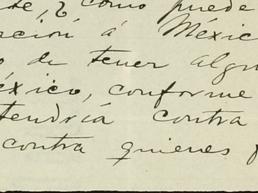 de, ¿ como puede
ación á Méxic
o de tener algu
éxico, conforme
tendría contra
contra quienes